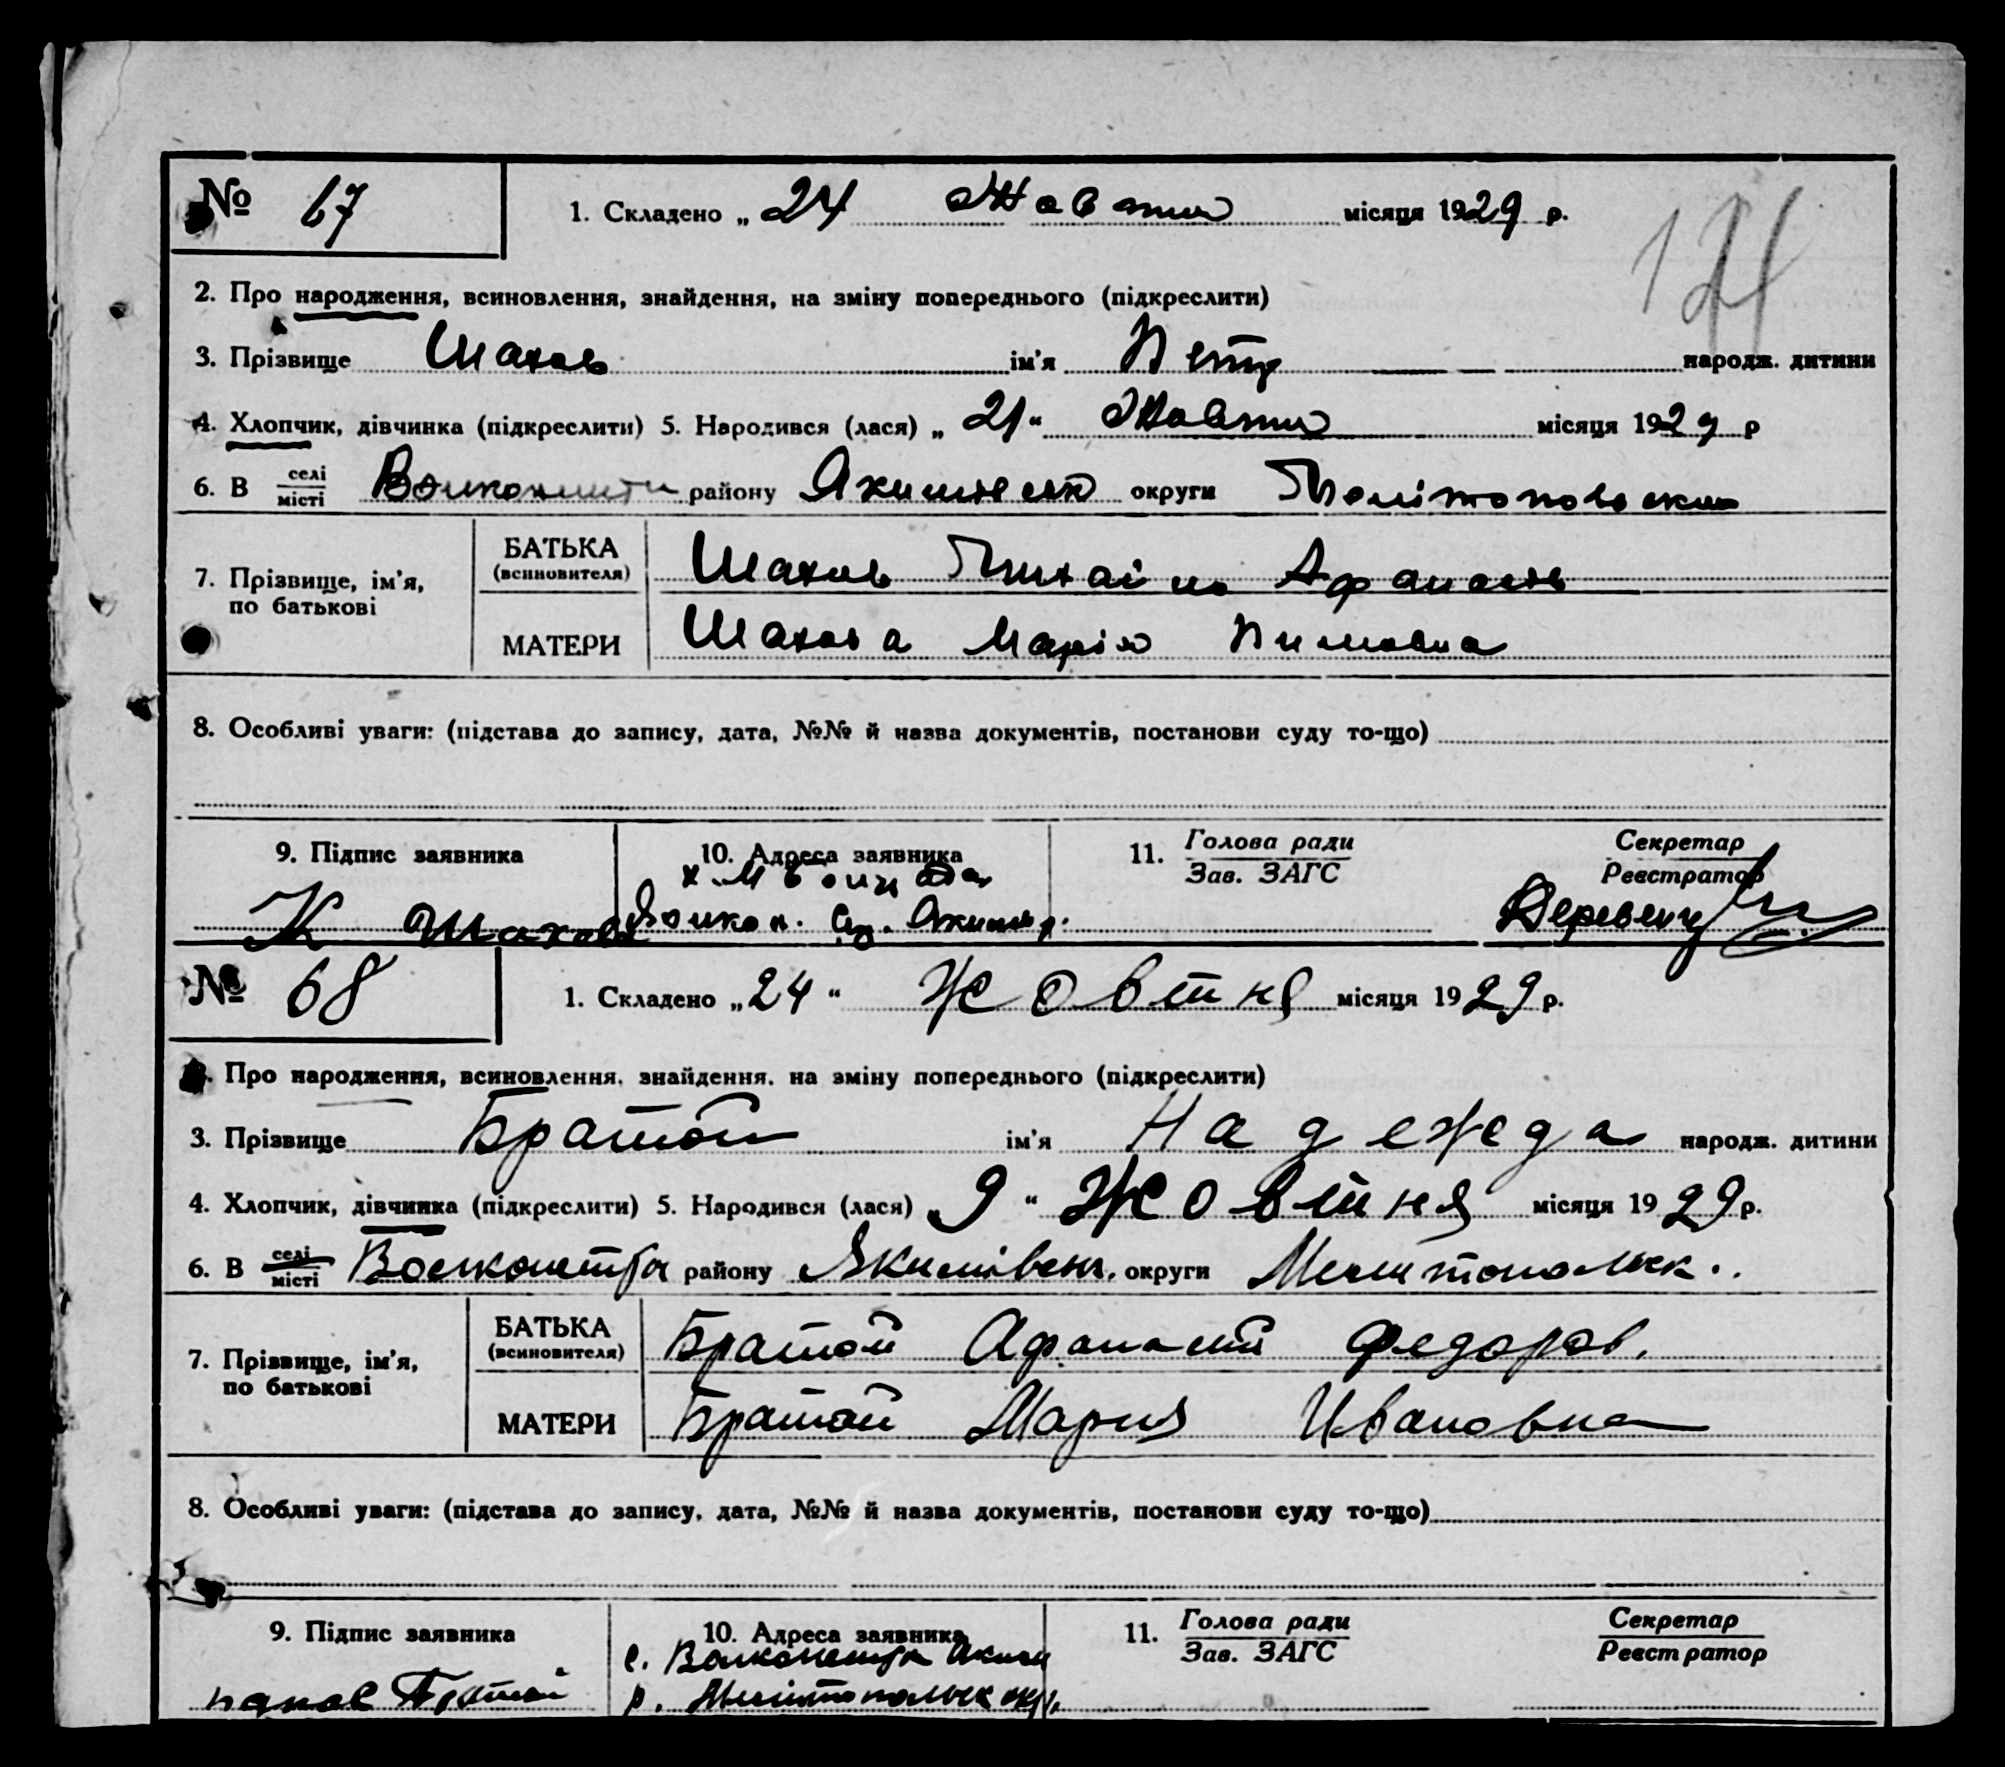 № 67 1. Складено „ 24 Жовтня місяця 1929 р.
2. Про народження, всиновлення, знайдення, на зміну попереднього (підкреслити)
3. Прізвище Шахов ім'я Петр народж. дитини
4. Хлопчик, дівчинка (підкреслити) 5. Народився (лася) „ 21 “ Жовтня місяця 1929 р
6. В селі/місті району округи
БАТЬКА
(всиновителя) Шахов Михаіл
7. Прізвище, ім'я,
по батькові
МАТЕРИ Шахова Марія
8. Особливі уваги: (підстава до запису, дата, №№ й назва документів, постанови суду то-що)
9. Підпис заявника 10. Адреса заявника 11. Голова ради/Зав. ЗАГС Секретар/Реєстратор
К Шахов
№ 68 1. Складено „ 24 “ Жовтня місяця 1929 р.
2. Про народження, всиновлення, знайдення, на зміну попереднього (підкреслити)
3. Прізвище Братой ім'я Надежда народж. дитини
4. Хлопчик, дівчинка (підкреслити) 5. Народився (лася) „ 9 “ Жовтня місяця 1929 р.
6. В селі/місті району округи
БАТЬКА
(всиновителя) Братой Афанасий Федоров.
7. Прізвище, ім'я,
по батькові
МАТЕРИ Братой Мария Ивановна
8. Особливі уваги: (підстава до запису, дата, №№ й назва документів, постанови суду то-що)
9. Підпис заявника 10. Адреса заявника 11. Голова ради/Зав. ЗАГС Секретар/Реєстратор